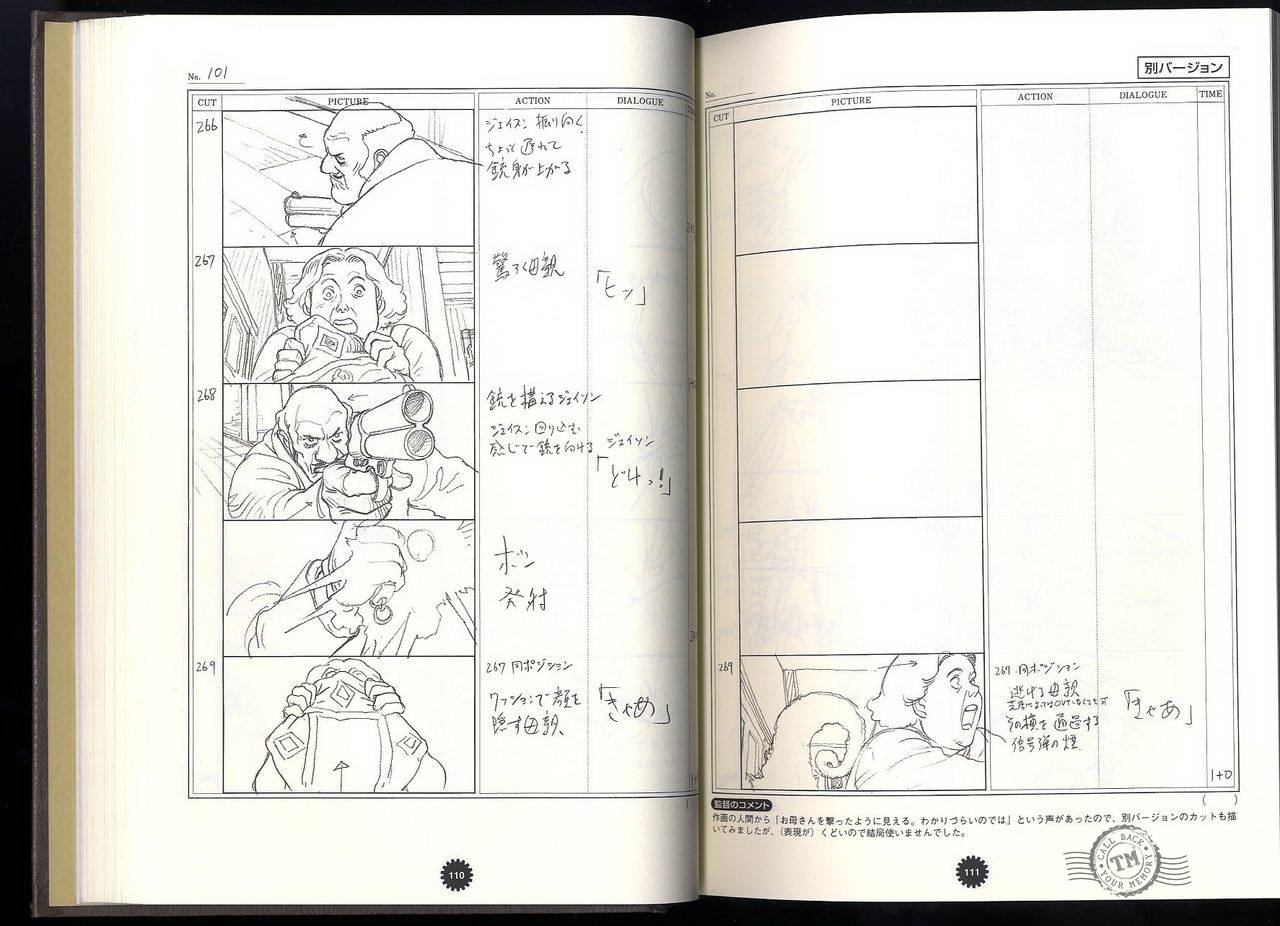 No. 101
CUT
PICTURE
ACTION
DIALOGUE
266
ジェイソン 振り向く
ちょっと遅れて
銃身が上がる
267
驚く母親
「ヒッ」
268
銃を構えるジェイソン
ジェイソン回り込む
感じで銃を向ける
ジェイソン
「どけっ!」
ボン
発射
269
267 同ポジション
クッションで顔を
隠す母親
「きゃあ」
110
別バージョン
No.
CUT
PICTURE
ACTION
DIALOGUE
TIME
269
267 同ポジション
逃げる母親
その横を通過する
信号弾の煙
「きゃあ」
1+0
( )
監督のコメント
作画の人間から「お母さんを撃ったように見える。わかりづらいのでは」という声があったので、別バージョンのカットも描
いてみましたが、(表現が)くどいので結局使いませんでした。
111
CALL BACK
TM
YOUR MEMORY